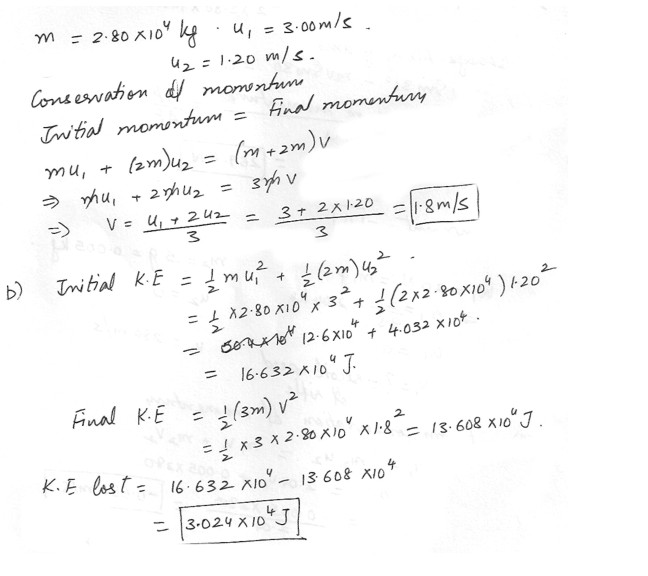 m = 2.80 × 10⁴ kg . u₁ = 3.00 m/s .
u₂ = 1.20 m/s .
Conservation of momentum
Initial momentum = Final momentum
mu₁ + (2m)u₂ = (m + 2m)V
⇒ mu₁ + 2mu₂ = 3mV
⇒ V = (u₁ + 2u₂)/3 = (3 + 2 × 1.20)/3 = 1.8 m/s
b) Initial K.E = ½ mu₁² + ½ (2m)u₂² .
= ½ × 2.80 × 10⁴ × 3² + ½ (2 × 2.80 × 10⁴) 1.20²
= 12.6 × 10⁴ + 4.032 × 10⁴ .
= 16.632 × 10⁴ J.
Final K.E = ½ (3m) V²
= ½ × 3 × 2.80 × 10⁴ × 1.8² = 13.608 × 10⁴ J .
K.E lost = 16.632 × 10⁴ − 13.608 × 10⁴
= 3.024 × 10⁴ J